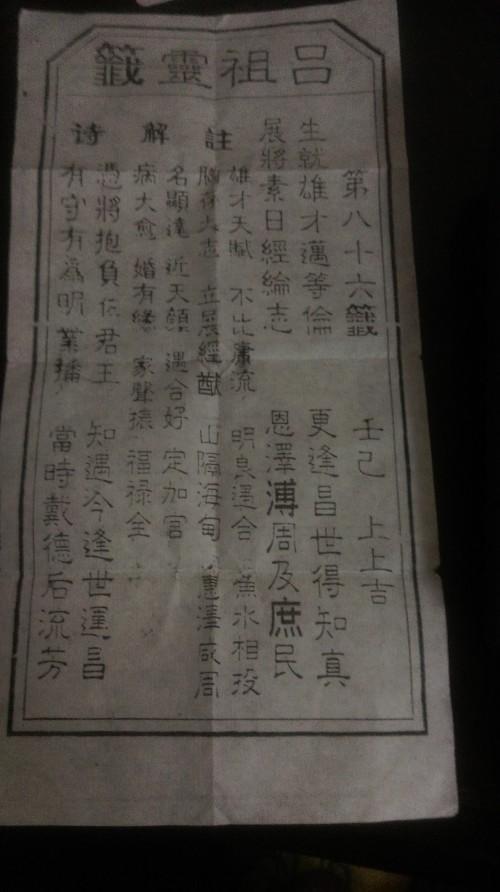 呂祖靈籤
第八十六籤 壬己 上上吉
生就雄才邁等倫 更逢昌世得知真
展將素日經綸志 恩澤溥周及庶民
註
雄才天賦 不比庸流 明良遇合 魚水相投
大志 立展經猷 山隔海甸 惠澤咸周
解
名顯達 近天顏 遇合好 定加官
病大愈 婚有緣 家聲振 福禄全
诗
憑將抱負佐君王 知遇今逢世運昌
有守有為明業播 當時戴德后流芳